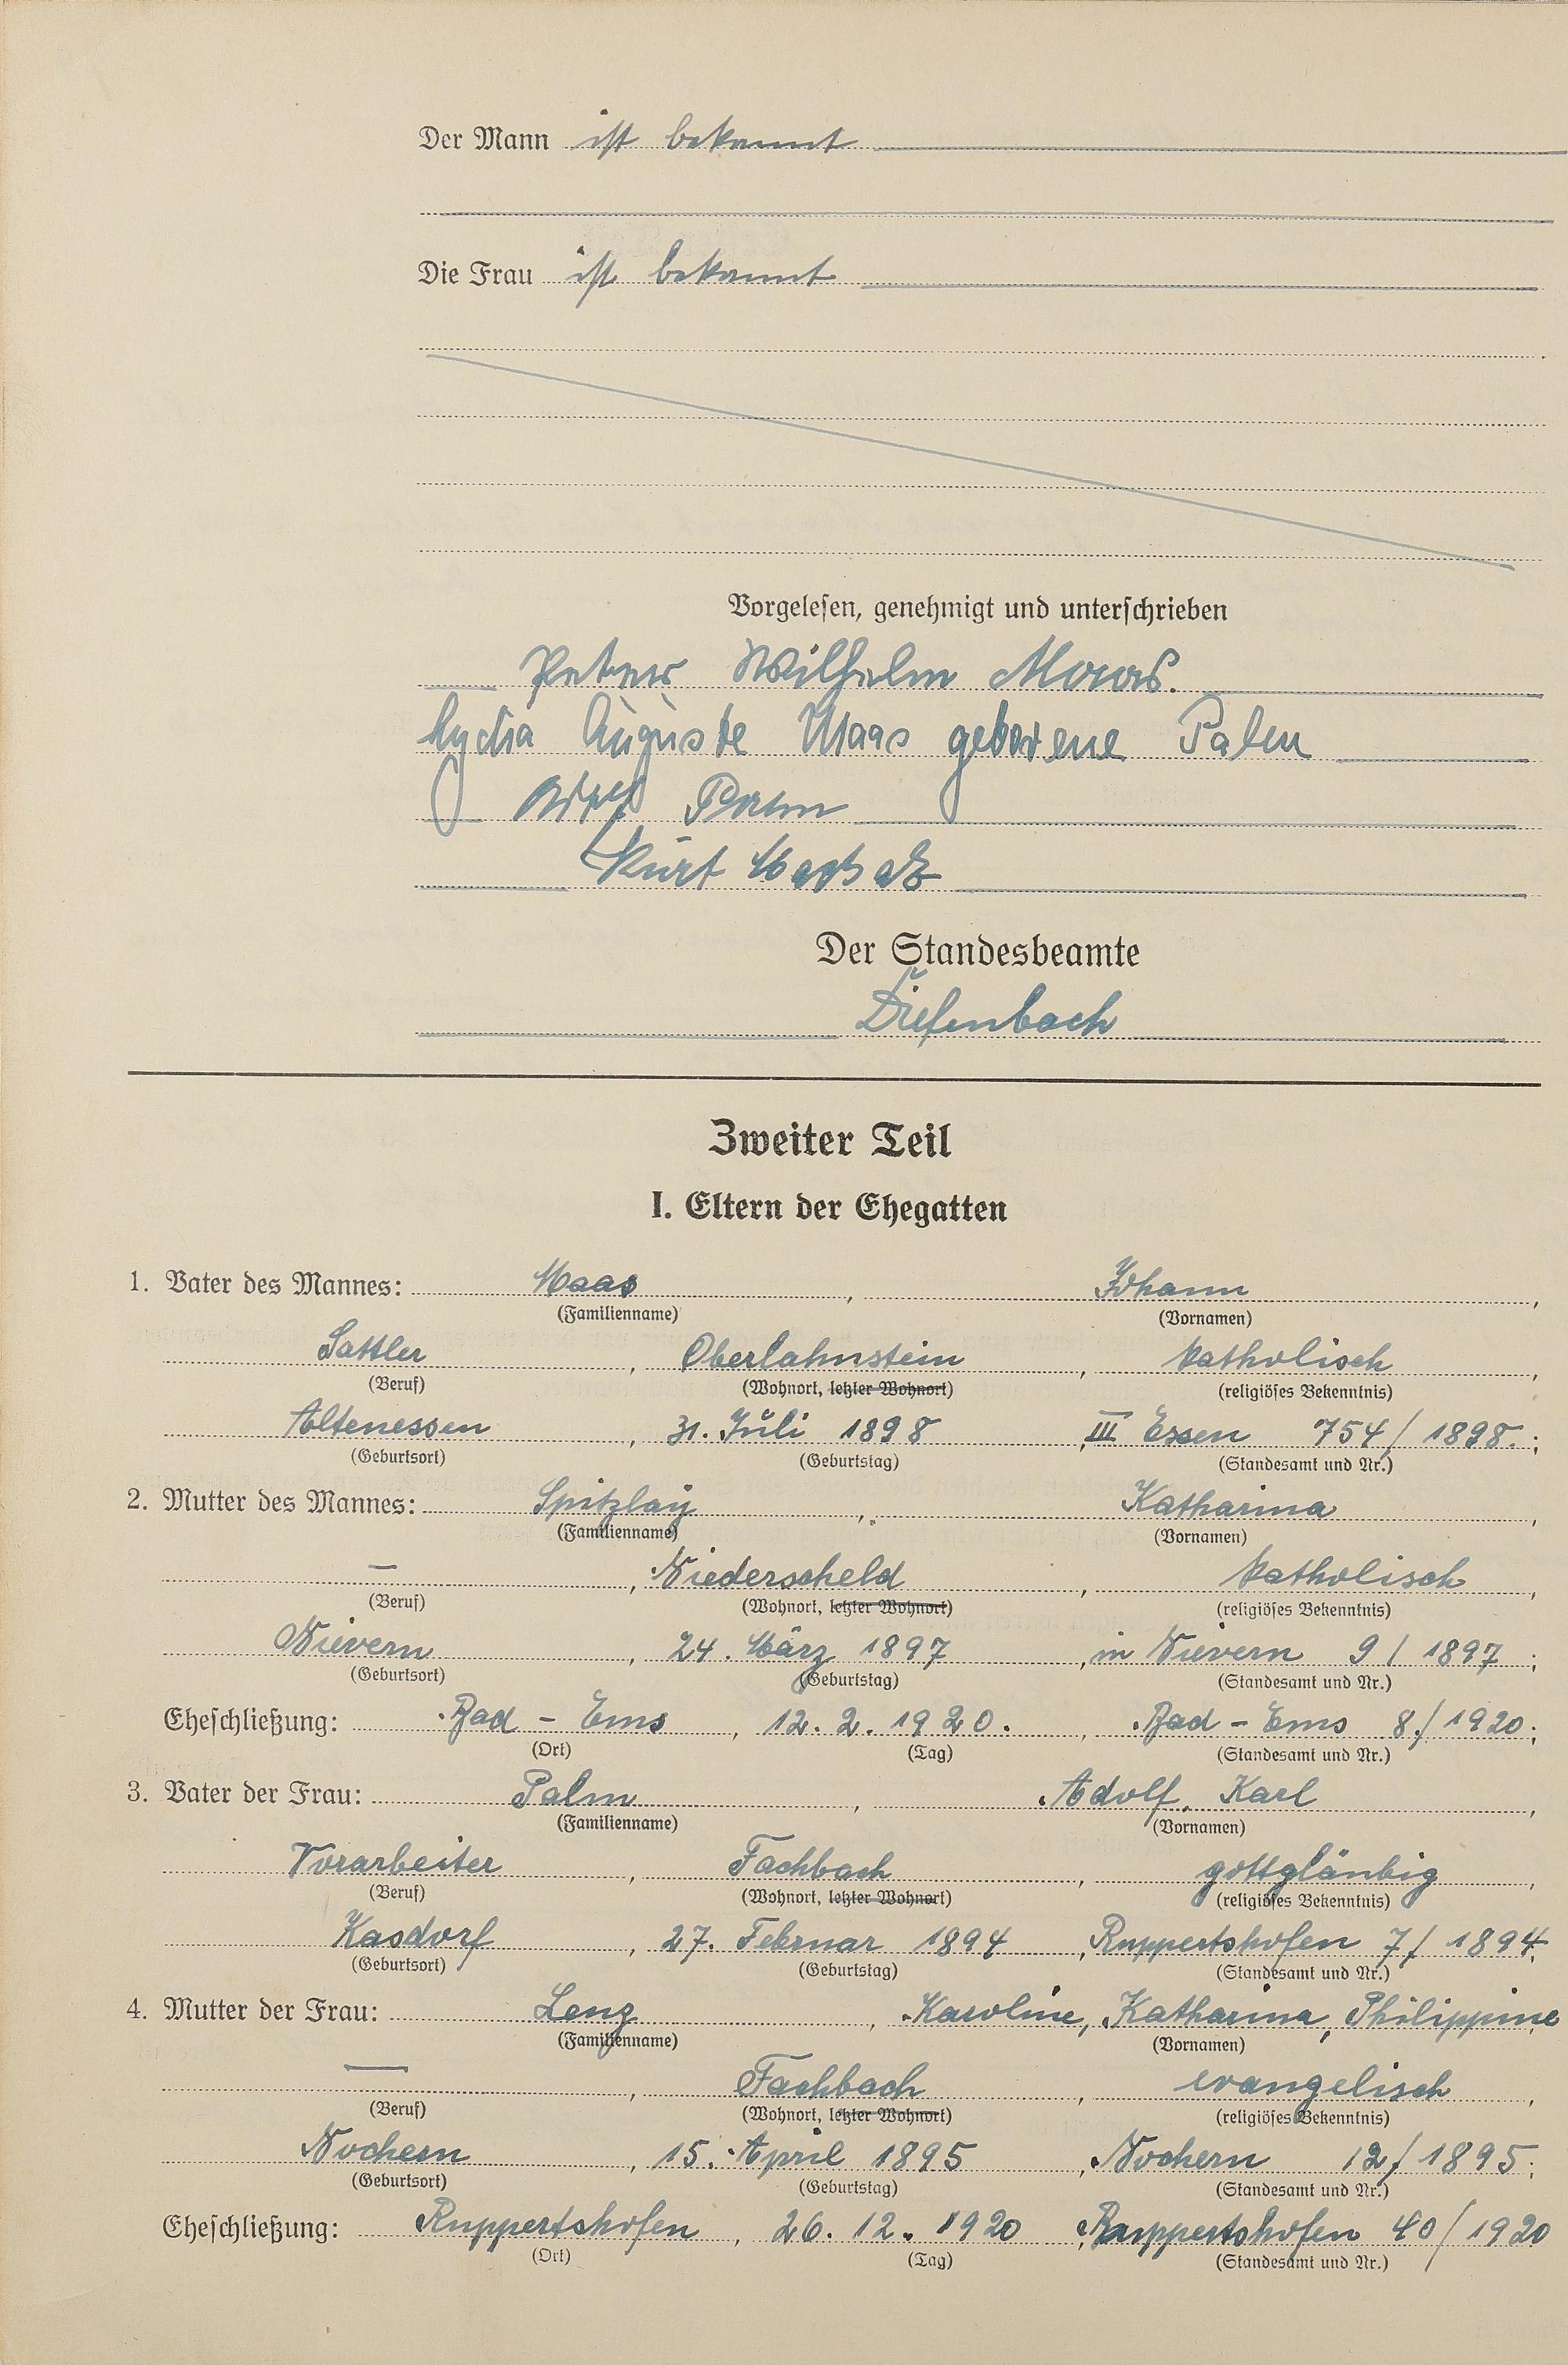 Der Mann ist bekannt
Die Frau ist bekannt
Vorgelesen, genehmigt und unterschrieben
Peter Wilhelm Maas.
Lydia Auguste Maas geborene Palm
Palm
Kurt
Der Standesbeamte
Diefenbach
Zweiter Teil
I. Eltern der Ehegatten
1. Vater des Mannes: Maas, Johann,
(Familienname) (Vornamen)
Sattler, Oberlahnstein, katholisch,
(Beruf) (Wohnort, letzter Wohnort) (religiöses Bekenntnis)
Altenessen, 31. Juli 1898, III Essen 754/1898.;
(Geburtsort) (Geburtstag) (Standesamt und Nr.)
2. Mutter des Mannes: Spitzlay, Katharina,
(Familienname) (Vornamen)
—, Niederscheld, katholisch,
(Beruf) (Wohnort, letzter Wohnort) (religiöses Bekenntnis)
Nievern, 24. März 1897, in Nievern 9/1897;
(Geburtsort) (Geburtstag) (Standesamt und Nr.)
Eheschließung: Bad-Ems, 12.2.1920., Bad-Ems 8./1920;
(Ort) (Tag) (Standesamt und Nr.)
3. Vater der Frau: Palm, Adolf, Karl,
(Familienname) (Vornamen)
Vorarbeiter, Fachbach, gottgläubig,
(Beruf) (Wohnort, letzter Wohnort) (religiöses Bekenntnis)
Kasdorf, 27. Februar 1894, Ruppertshofen 7/1894;
(Geburtsort) (Geburtstag) (Standesamt und Nr.)
4. Mutter der Frau: Lenz, Karoline, Katharina, Philippine
(Familienname) (Vornamen)
—, Fachbach, evangelisch,
(Beruf) (Wohnort, letzter Wohnort) (religiöses Bekenntnis)
Nochern, 15. April 1895, Nochern 12/1895;
(Geburtsort) (Geburtstag) (Standesamt und Nr.)
Eheschließung: Ruppertshofen, 26.12.1920, Ruppertshofen 40/1920
(Ort) (Tag) (Standesamt und Nr.)